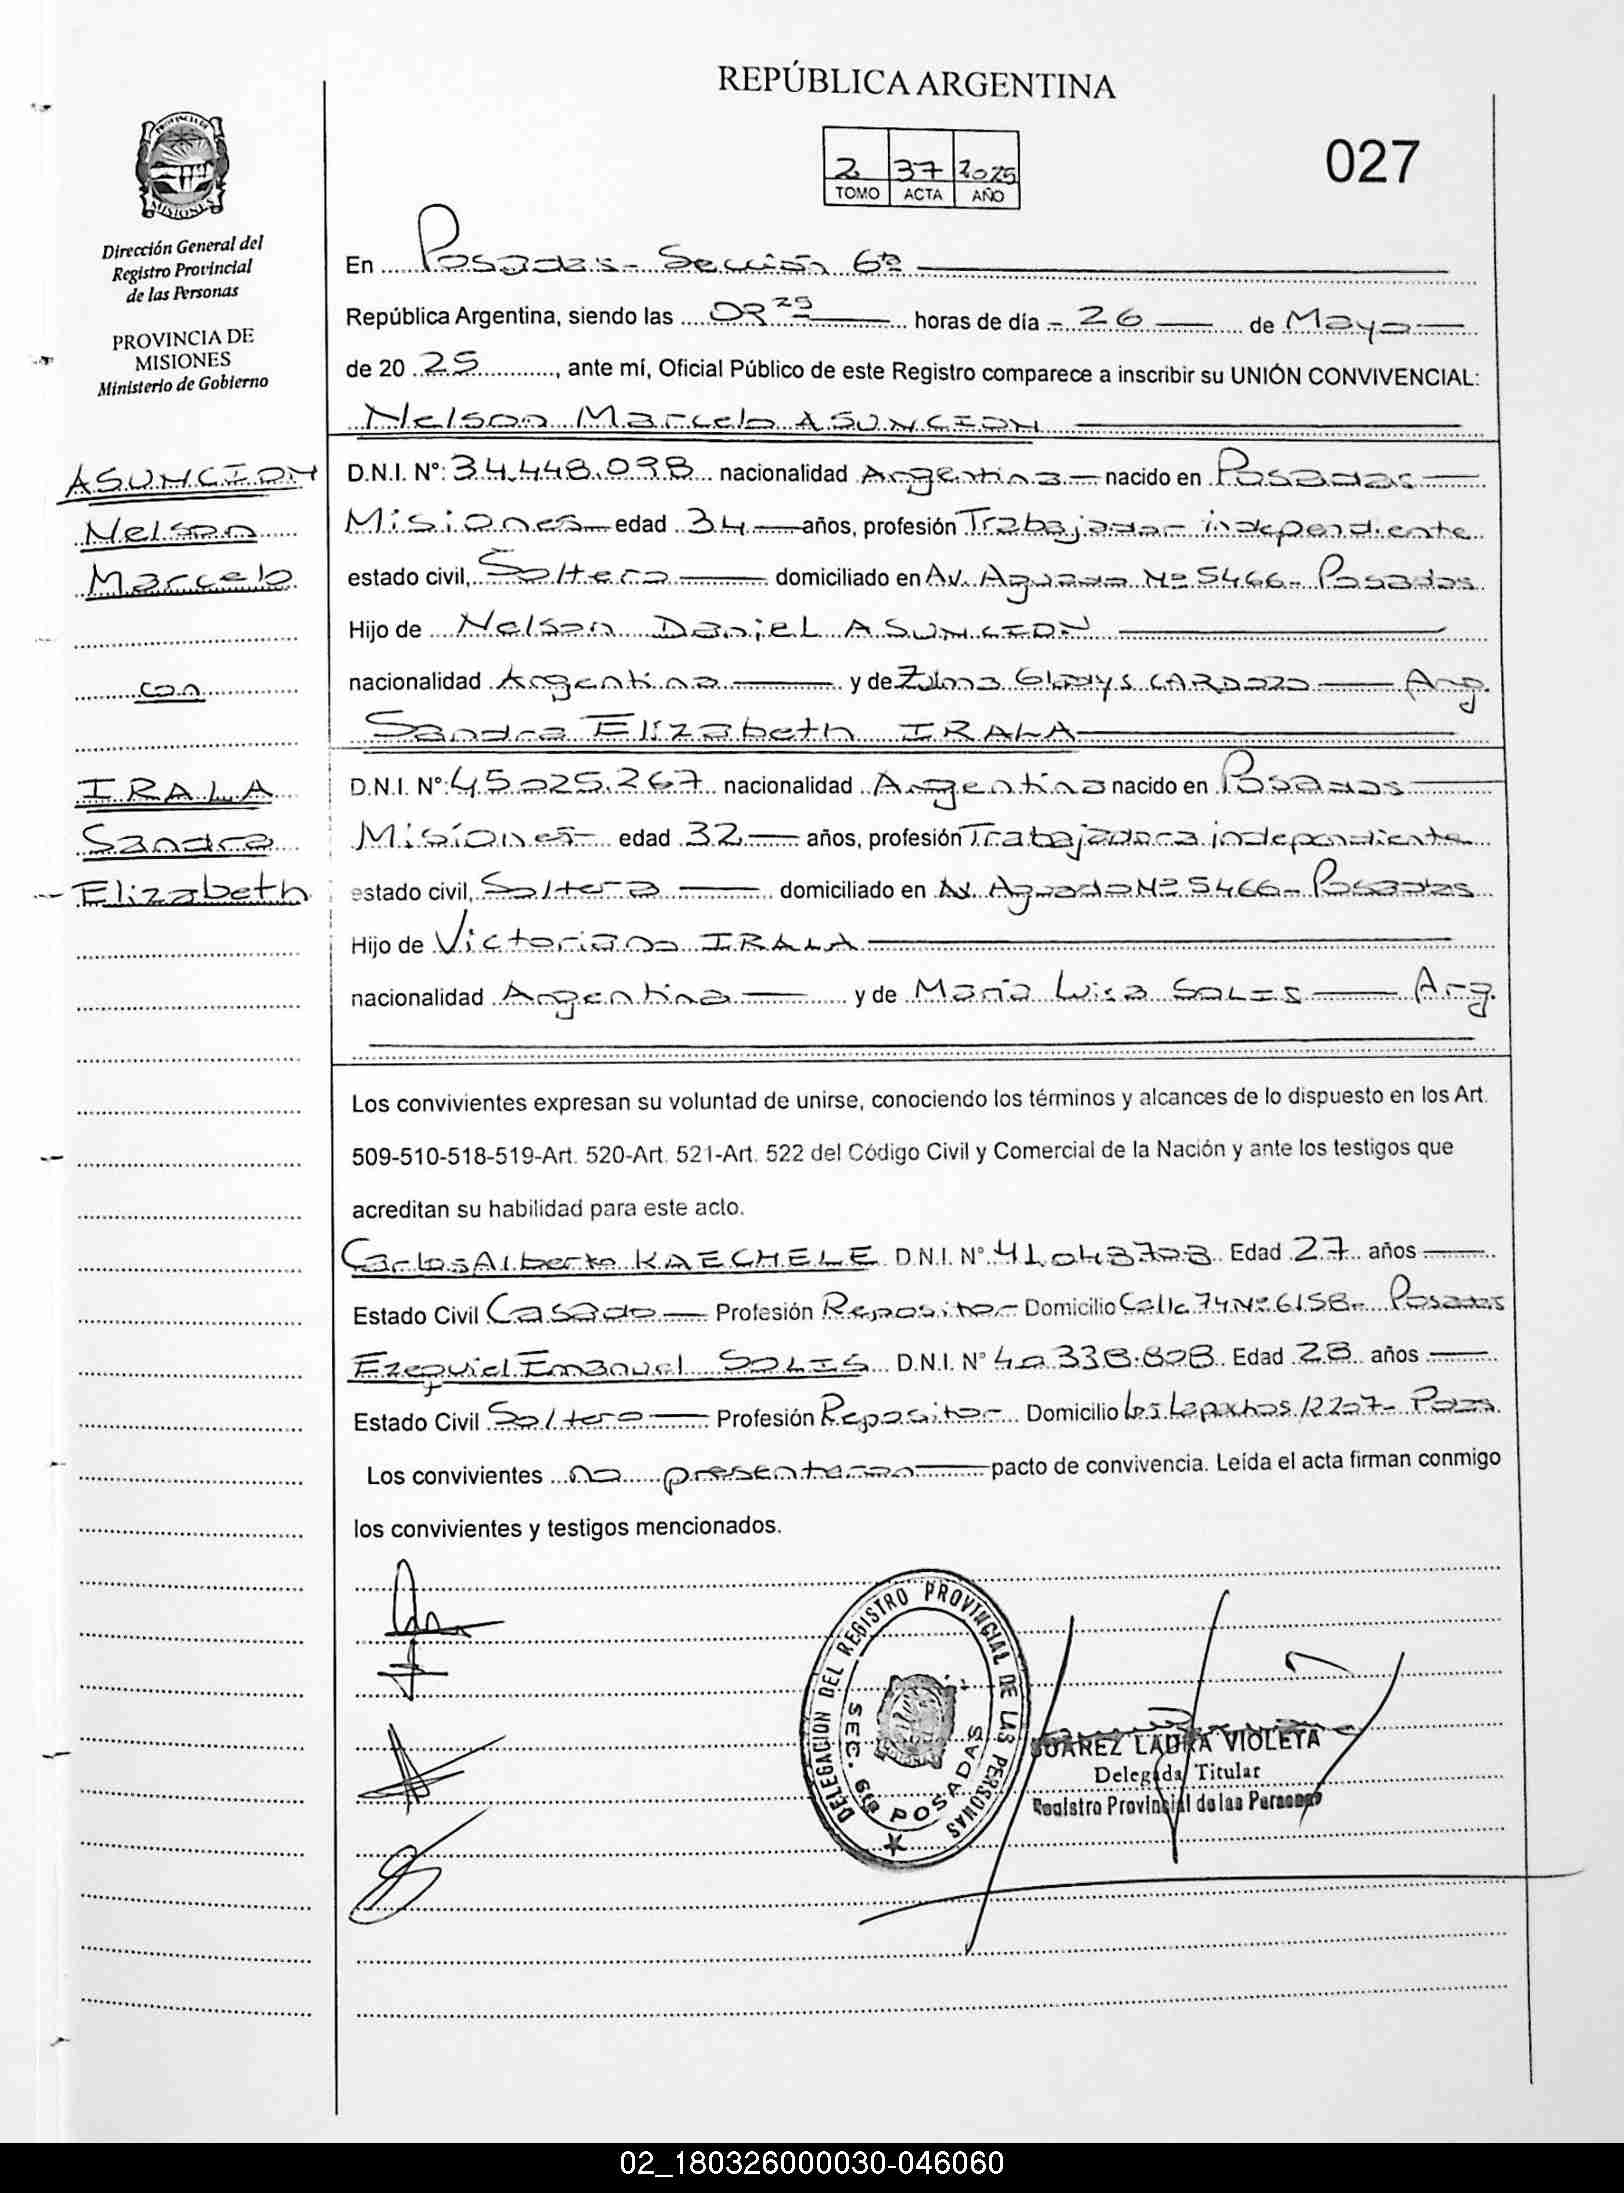 REPÚBLICA ARGENTINA
027
2 37 2025
TOMO ACTA AÑO
Dirección General del
Registro Provincial
de las Personas
PROVINCIA DE
MISIONES
Ministerio de Gobierno
En Posadas - Sección 6ta
República Argentina, siendo las horas de día - 26 de Mayo
de 20 25, ante mí, Oficial Público de este Registro comparece a inscribir su UNIÓN CONVIVENCIAL:
Nelson Marcelo ASUNCION
ASUNCION
Nelson
Marcelo
con
IRALA
Sandra
Elizabeth
D.N.I. N°: 34.448.098 nacionalidad Argentina nacido en Posadas
Misiones edad 34 años, profesión Trabajador independiente
estado civil, Soltero domiciliado en Av. Aguado Nº 5466 - Posadas
Hijo de Nelson Daniel ASUNCION
nacionalidad Argentina y de Zulma Gladys CARDOZO Arg.
Sandra Elizabeth IRALA
D.N.I. N°: 45.025.267 nacionalidad Argentina nacido en Posadas
Misiones edad 32 años, profesión Trabajadora independiente
estado civil, Soltera domiciliado en Av. Aguado Nº 5466 - Posadas
Hijo de Victoriano IRALA
nacionalidad Argentina y de María Luisa SOLIS Arg.
Los convivientes expresan su voluntad de unirse, conociendo los términos y alcances de lo dispuesto en los Art.
509-510-518-519-Art. 520-Art. 521-Art. 522 del Código Civil y Comercial de la Nación y ante los testigos que
acreditan su habilidad para este acto.
Carlos Alberto KAECHELE D.N.I. N° Edad 27 años
Estado Civil Casado Profesión Repositor Domicilio Calle 74 Nº 6158 - Posadas
Ezequiel Emanuel SOLIS D.N.I. N° 40.338.808 Edad 28 años
Estado Civil Soltero Profesión Repositor Domicilio Los Lapachos 12207 - Pdas.
Los convivientes no presentaron pacto de convivencia. Leída el acta firman conmigo
los convivientes y testigos mencionados.
DELEGACION DEL REGISTRO PROVINCIAL DE LAS PERSONAS
SEC. 6ta POSADAS
SUAREZ LAURA VIOLETA
Delegada Titular
Registro Provincial de las Personas
02_180326000030-046060